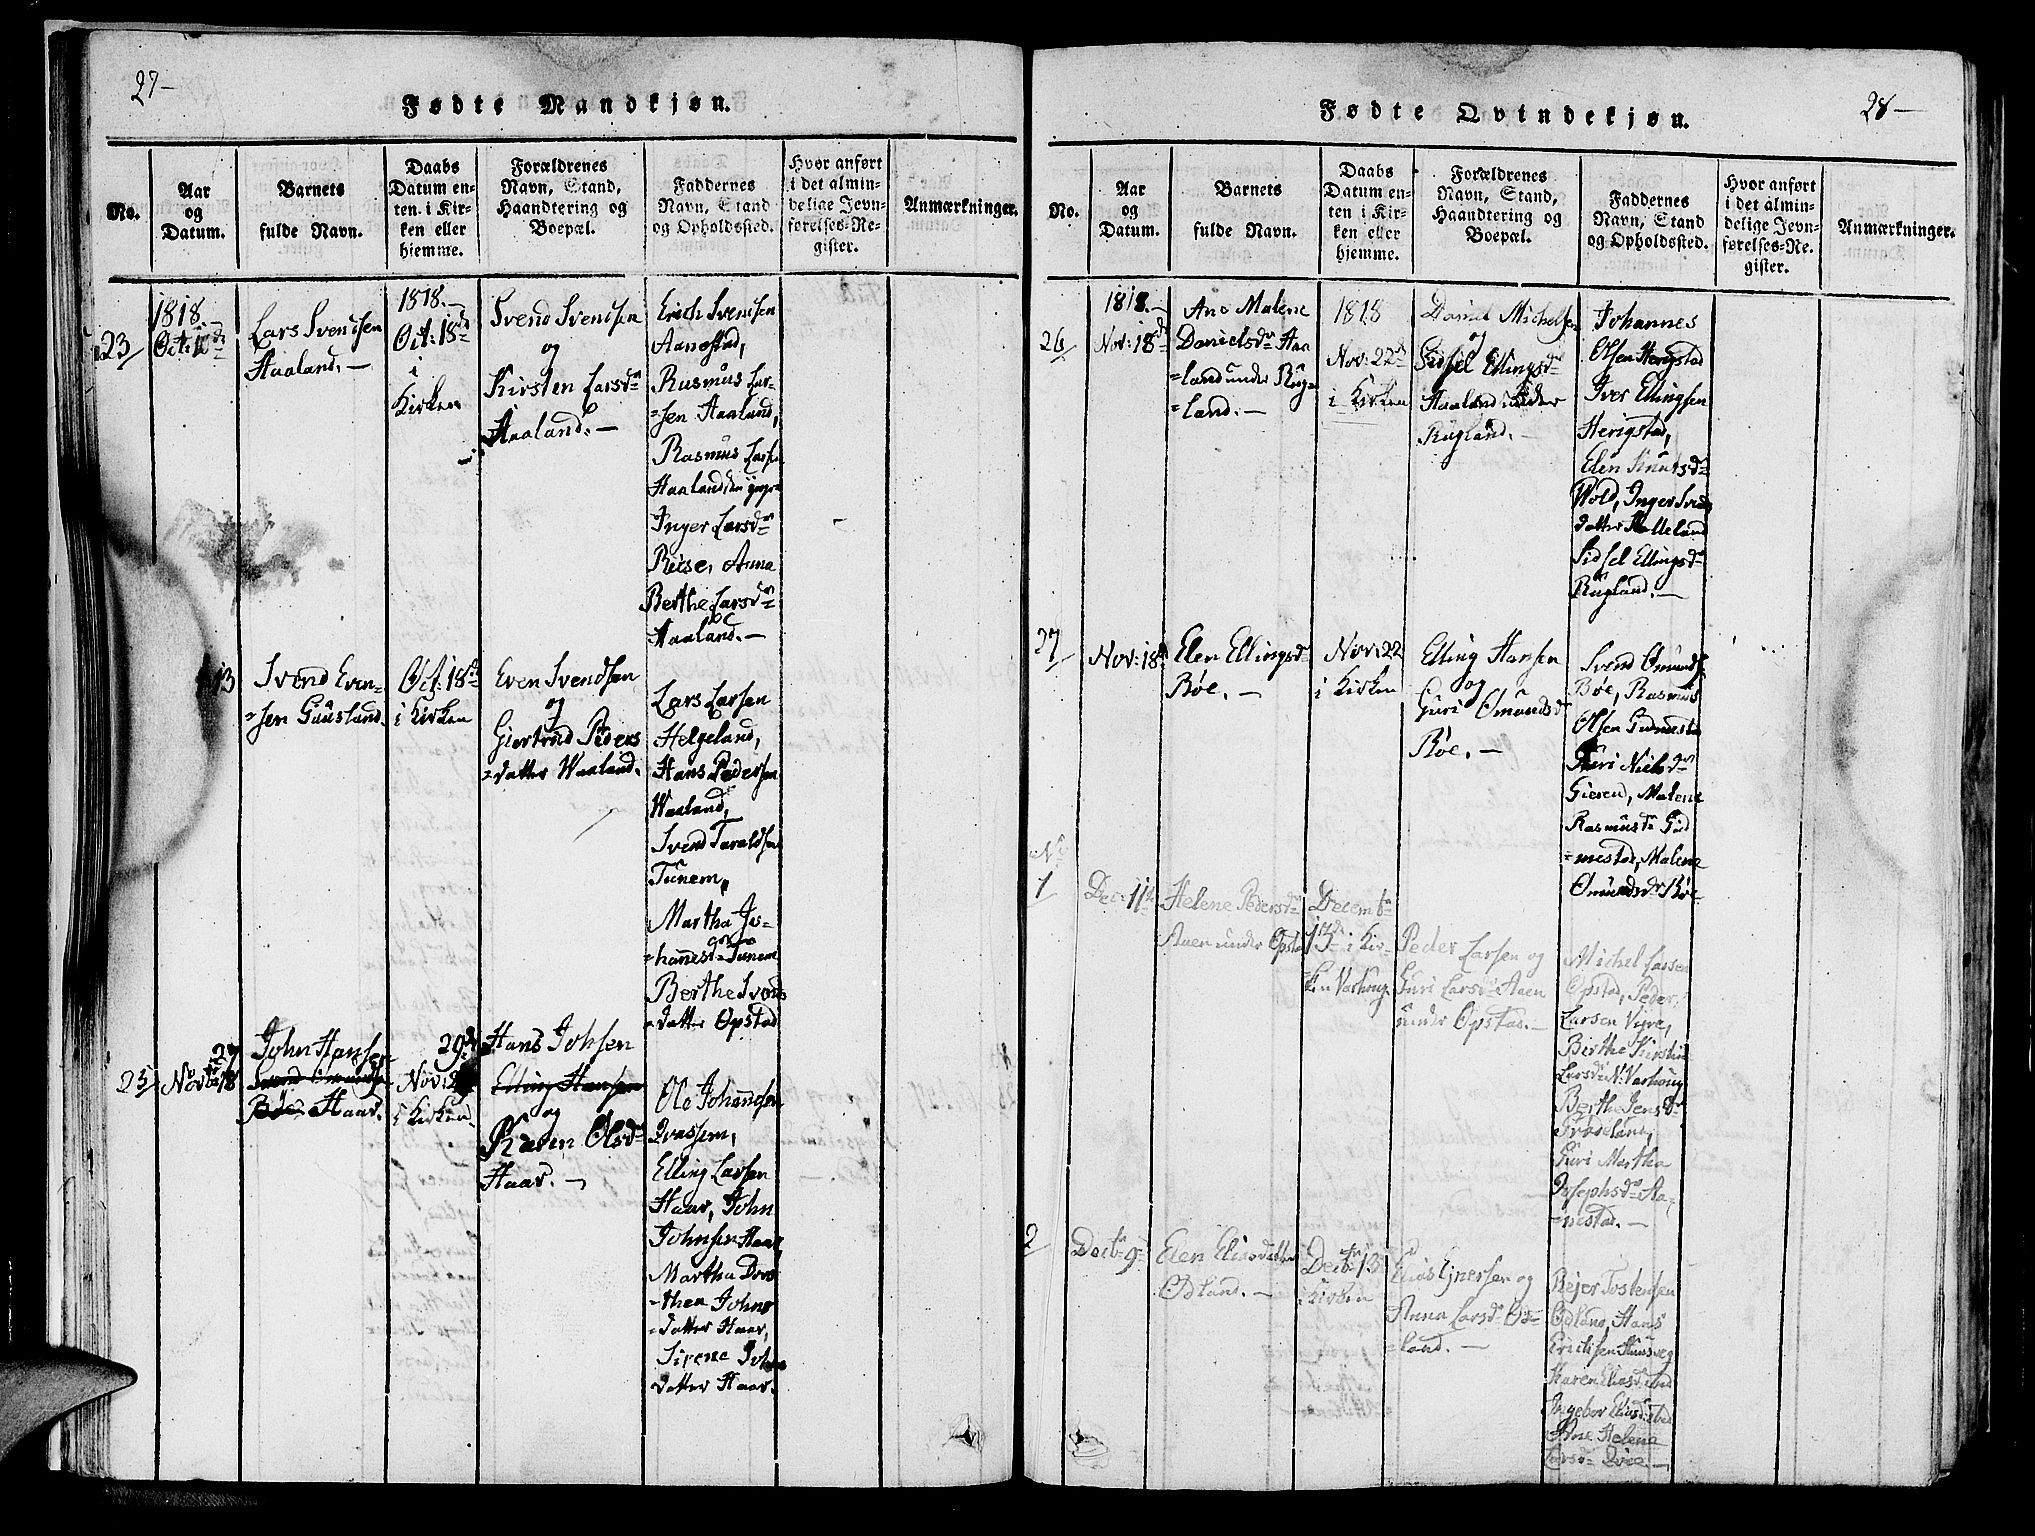 27-
Fødte Mandkjøn.
No.
Aar
og
Datum.
Barnets
fulde Navn.
Daabs
Datum en-
ten i Kir-
ken eller
hjemme.
Forældrenes
Navn, Stand,
Haandtering og
Boepæl.
Faddernes
Navn, Stand
og Opholdssted.
Hvor anført
i det almin-
delige Jevn-
førelses-Re-
gister.
Anmærkninger.
23
1818
Oct:
Lars Svendsen
Haaland. —
1818. —
Oct: 18d
i
Kirken
Svend Svendsen
og
Kirsten Larsdr
Haaland. —
Erich Svendsen
Aanestad,
Rasmus Lar-
=sen Haaland,
Rasmus Larsen
Haaland den yngre
Inger Larsdr
Reise, Anna
Berthe Larsdr
Haaland. —
13
Svend Even-
=sen Gausland.
Oct: 18d
i Kirken
Even Svendsen
og
Giertrud Peders
=datter Waaland.
Lars Larsen
Helgeland,
Hans Pedersen
Waaland,
Svend Taraldsen
Tunem,
Martha Jo-
=hannesdr Tunem
Berthe Svends
=datter Opstad
25
27
Novbr 18
John Hansen
Svend Omundsen
Bøe Haar.
29d
Nov: 2
i Kirken.
Hans Johsen
Elling Hansen
og
Karen Olsdr
Haar. —
Ole Johannsen
Qvassem,
Elling Larsen
Haar, John
Johnsen Haar,
Martha Dor=
=thea Johns
=datter Haar,
Sirene Johns
datter Haar.
28-
Fødte Qvindekjøn.
No.
Aar
og
Datum.
Barnets
fulde Navn.
Daabs
Datum en-
ten i Kir-
ken eller
hjemme.
Forældrenes
Navn, Stand,
Haandtering og
Boepæl.
Faddernes
Navn, Stand
og Opholdssted.
Hvor anført
i det almin-
delige Jevn-
førelses-Re-
gister.
Anmærkninger.
26
1818. —
Nov: 18d
Ane Malene
Danielsdr Haa
=land under Rug=
=land. —
1818
Nov: 22d
i Kirken
Daniel Michelsen
og
Sidsel Ellingsdr
Haaland under
Rugland. —
Johannes
Olsen Herigstad
Iver Ellingsen
Herigstad,
Elen Knutsdr
Wold, Inger Svends
datter Helleland
Sidsel Ellingsdr
Rugland. —
27
Nov: 18d
Elen Ellingsdr
Bøe. —
Nov: 22
i Kirken
Elling Hansen
og
Guri Omundsd
Bøe. —
Svend Omunds.
Bøe, Rasmus
Olsen Gudmestad
Guri Nielsdr
Gieren, Malene
Rasmusdr Gud
=mestad, Malene
Omundsdr Bøe
No
1
Dec: 11te
Helene Pedersdr
Aaen under Opstad
Decembr
13de i Kir-
ken Varhoug
Peder Larsen og
Guri Larsdr Aaen
under Opstad. —
Michel Larsen
Opstad, Peder
Larsen Vigre,
Birthe Kirstine
Larsdr N: Varhoug
Berthe Jensdr
Grødeland,
Guri Martha
Josephsdr Aa-
=nestad. —
2
Decbr 9de
Elen Eliasdatter
Odland. —
Decbr 13
i Kirken
Elias Ejnersen og
Anna Larsdr Od=
=land. —
Rejer Tostensen
Odland, Hans
Erichsen
Karen Eliasdr
Ingebor Eliasdr
Ane Helene
Larsdr